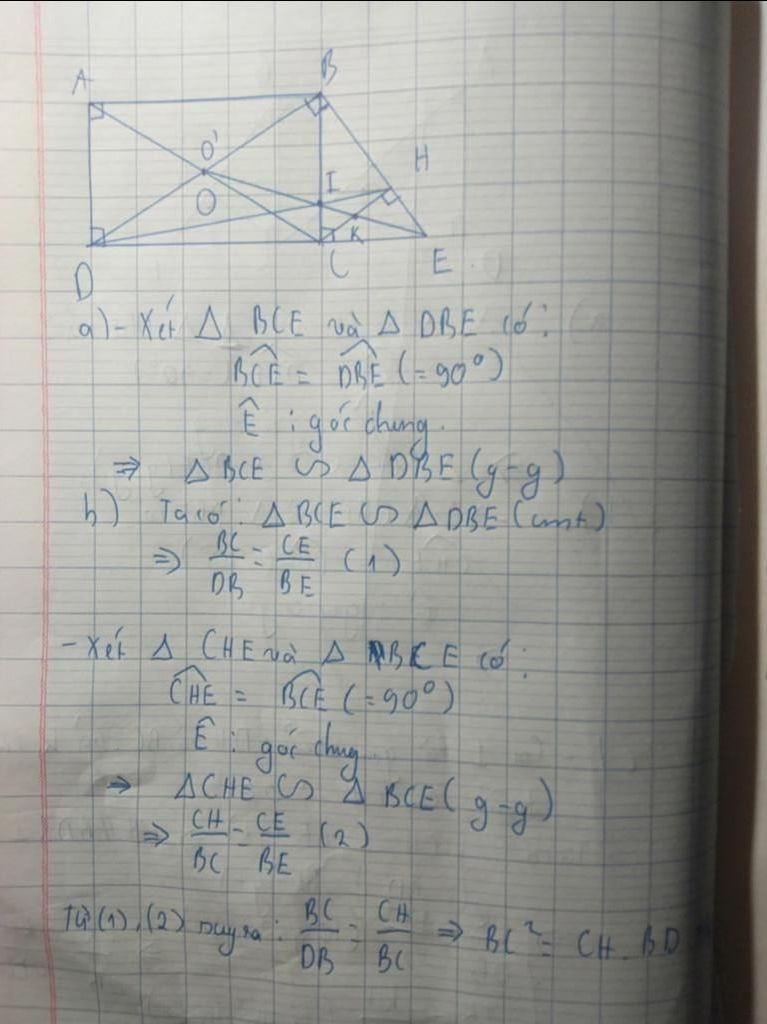 A B
O' H
O I
K
D C E
a) - Xét Δ BCE và Δ DBE có:
BCE^ = DBE^ (= 90°)
Ê : góc chung.
⇒ Δ BCE ∽ Δ DBE (g-g)
b) Ta có: Δ BCE ∽ Δ DBE (cmt)
⇒ BC/DB = CE/BE (1)
- Xét Δ CHE và Δ BCE có:
CHE^ = BCE^ (= 90°)
Ê : góc chung
⇒ ΔCHE ∽ Δ BCE (g-g)
⇒ CH/BC = CE/BE (2)
Từ (1), (2) suy ra: BC/DB = CH/BC ⇒ BC² = CH . BD